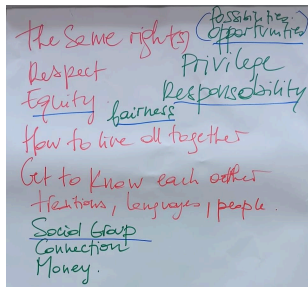 the same right(s) (Possibilities
Opportunities)
Respect Privilege
Equity fairness Responsability
How to live all together
Get to know each other
traditions, languages, people.
Social Group
Connection
Money.